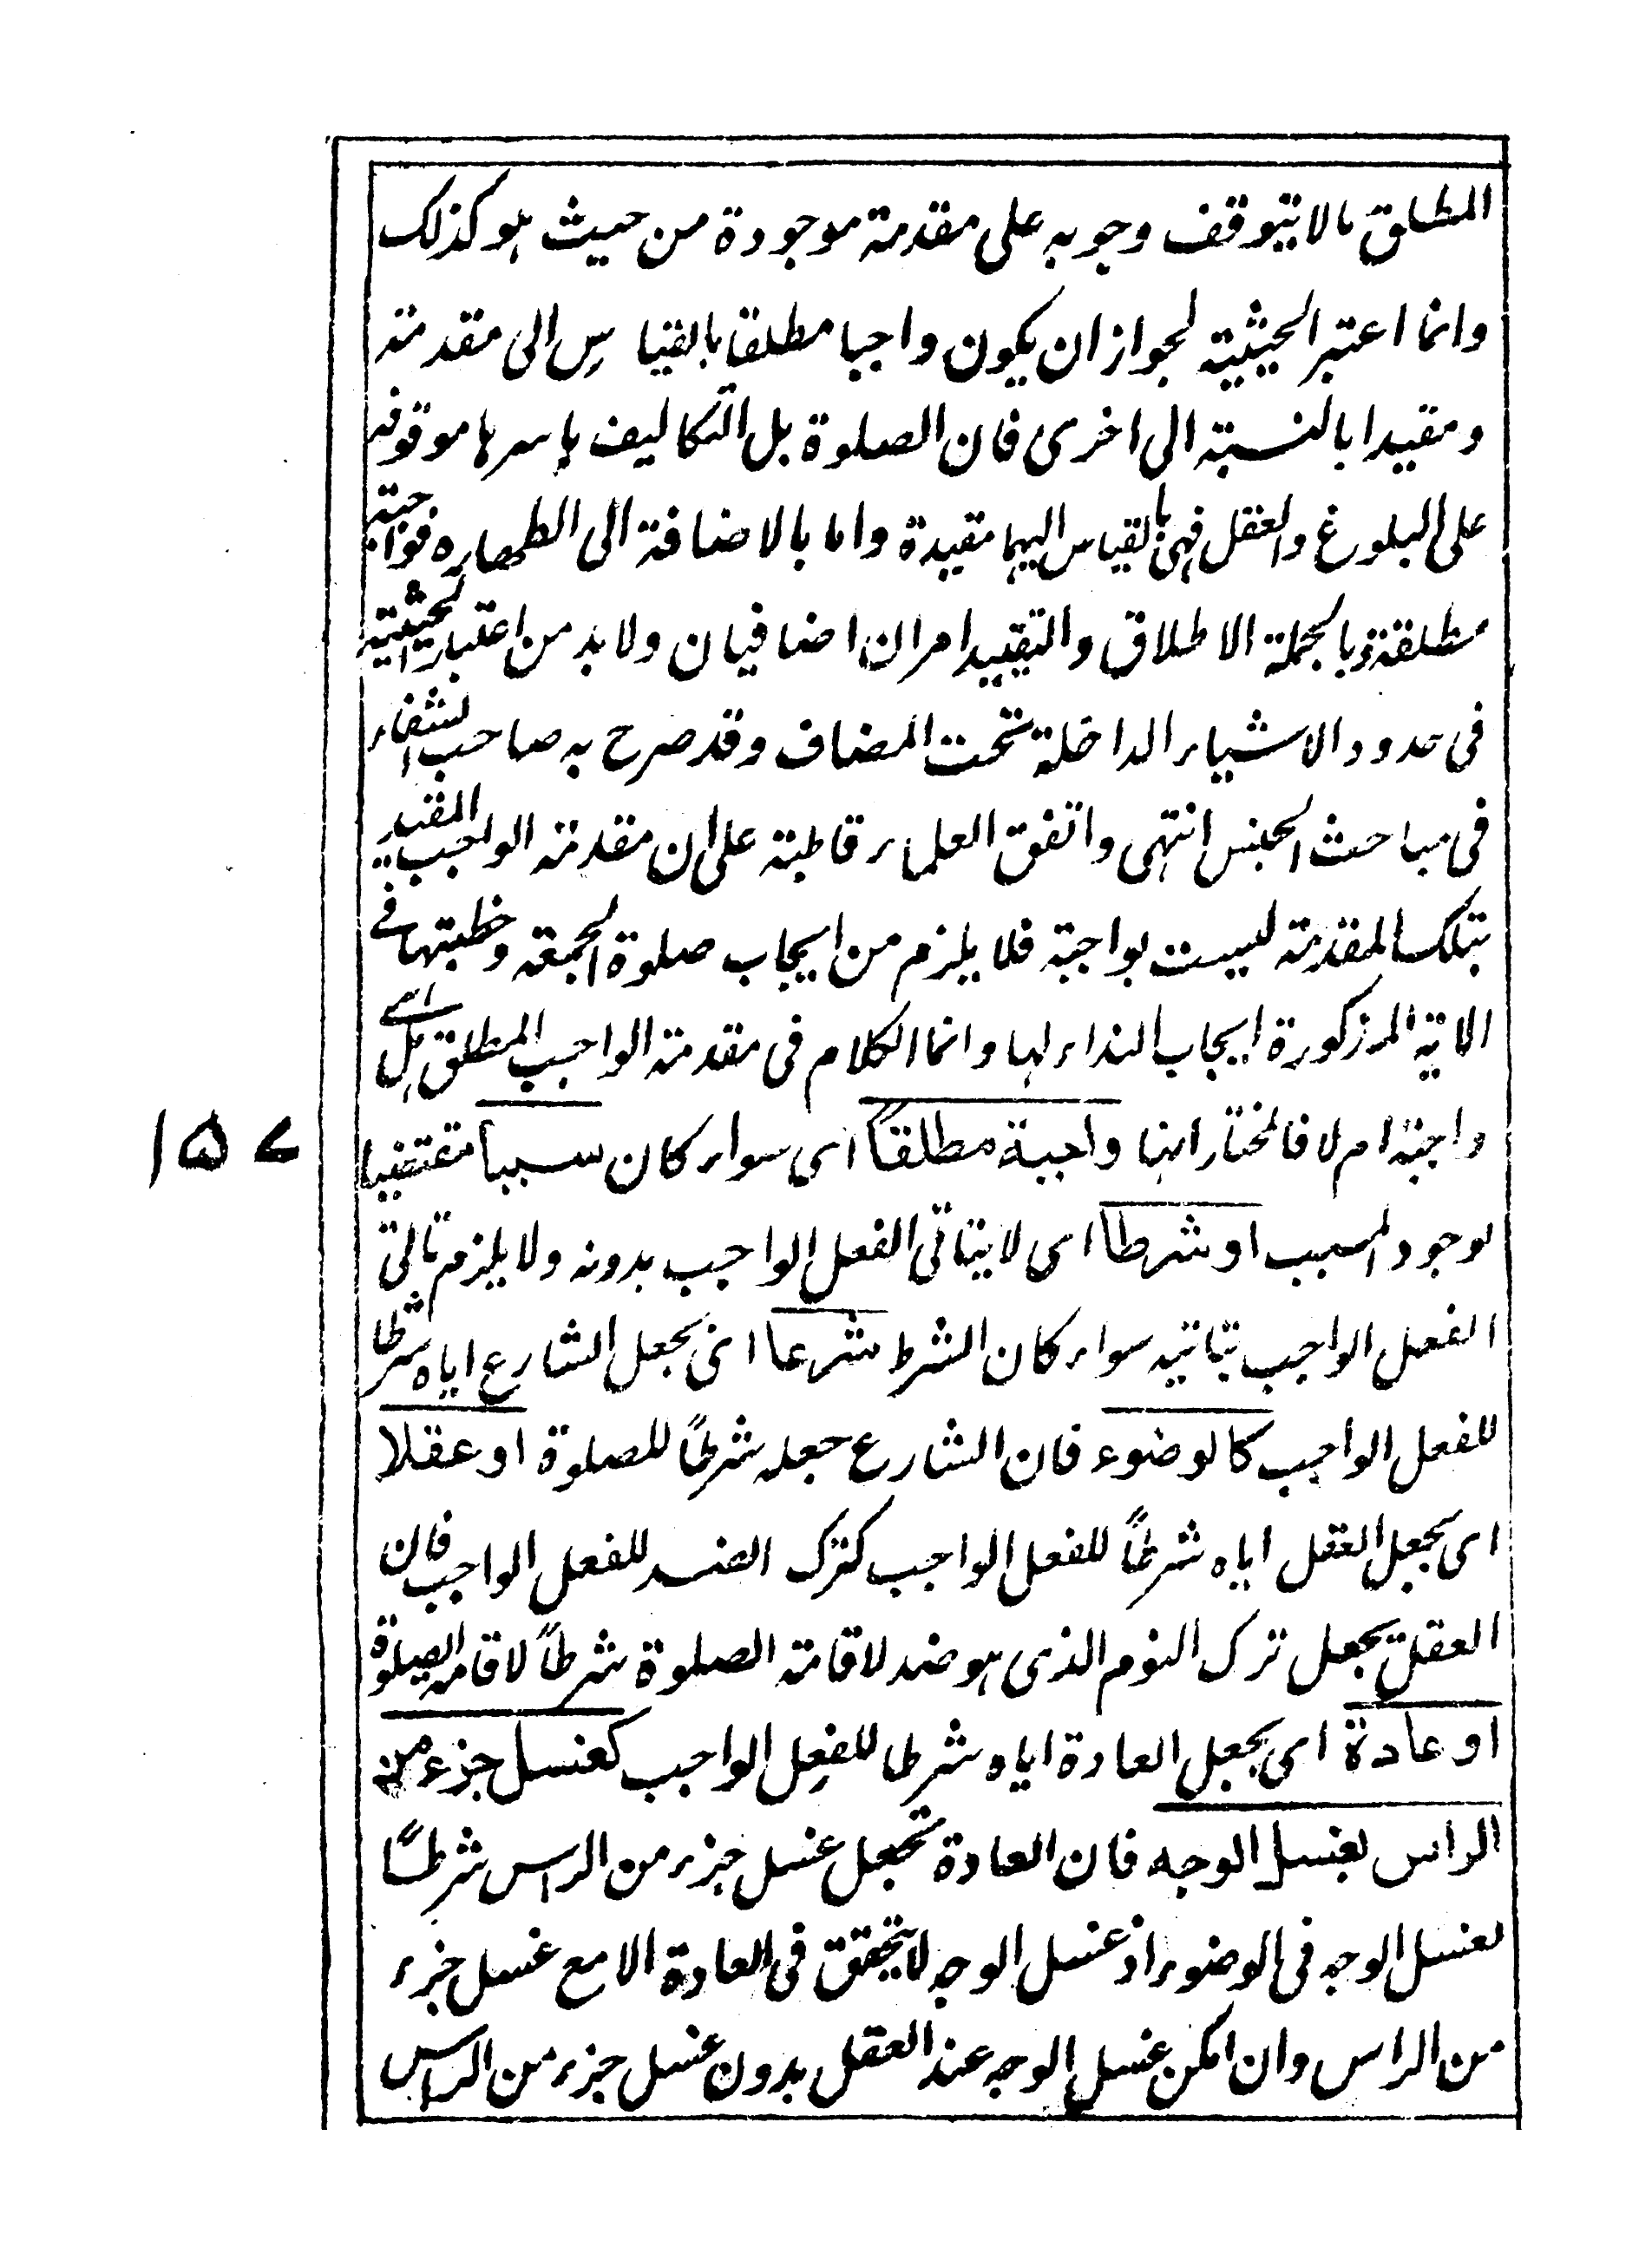 المطلق مالا يتوقف وجوبه على مقدمة موجودة من حيث هو كذلك
وانما اعتبر الحيثية لجواز ان يكون واجبا مطلقا بالقياس الى مقدمة
ومقيدا بالنسبة الى اخرى فان الصلوة بل التكاليف باسرها موقوفه
على البلوغ والعقل فهى بالقياس اليهما مقيدة واما بالاضافة الى الطهاره فواجبة
مطلقة وبالجملة الاطلاق والتقييد امران اضافيان ولابد من اعتبار الحيثية
فى حدود الاشياء الداخلة تحت المضاف وقد صرح به صاحب الشفاء
فى مباحث الجنس انتهى واتفق العلماء قاطبة على ان مقدمة الواجب المقيد
بتلك المقدمة ليست بواجبة فلا يلزم من ايجاب صلوة الجمعة وخطبتها فى
الاية المذكورة ايجاب النداء لها وانما الكلام فى مقدمة الواجب المطلق اهى
واجبة ام لا فالمختار انها واجبة مطلقاً اى سواء كان سببا مقتضيا
لوجود المسبب او شرطا اى لا يتاتى الفعل الواجب بدونه ولا يلزم تاتى
الفعل الواجب بتاتيه سواء كان الشرط شرعا اى بجعل الشارع اياه شرطا
للفعل الواجب كالوضوء فان الشارع جعله شرطاً للصلوة او عقلا
اى بجعل العقل اياه شرطاً للفعل الواجب كترك الضد للفعل الواجب فان
العقل يجعل ترك النوم الذى هو ضد لاقامة الصلوة شرطاً لاقامة الصلوة
او عادة اى بجعل العادة اياه شرطا للفعل الواجب كغسل جزء من
الراس لغسل الوجه فان العادة تجعل غسل جزء من الراس شرطاً
لغسل الوجه فى الوضوء اذ غسل الوجه لا يتحقق فى العادة الا مع غسل جزء
من الراس وان امكن غسل الوجه عند العقل بدون غسل جزء من الراس
۱۵۷